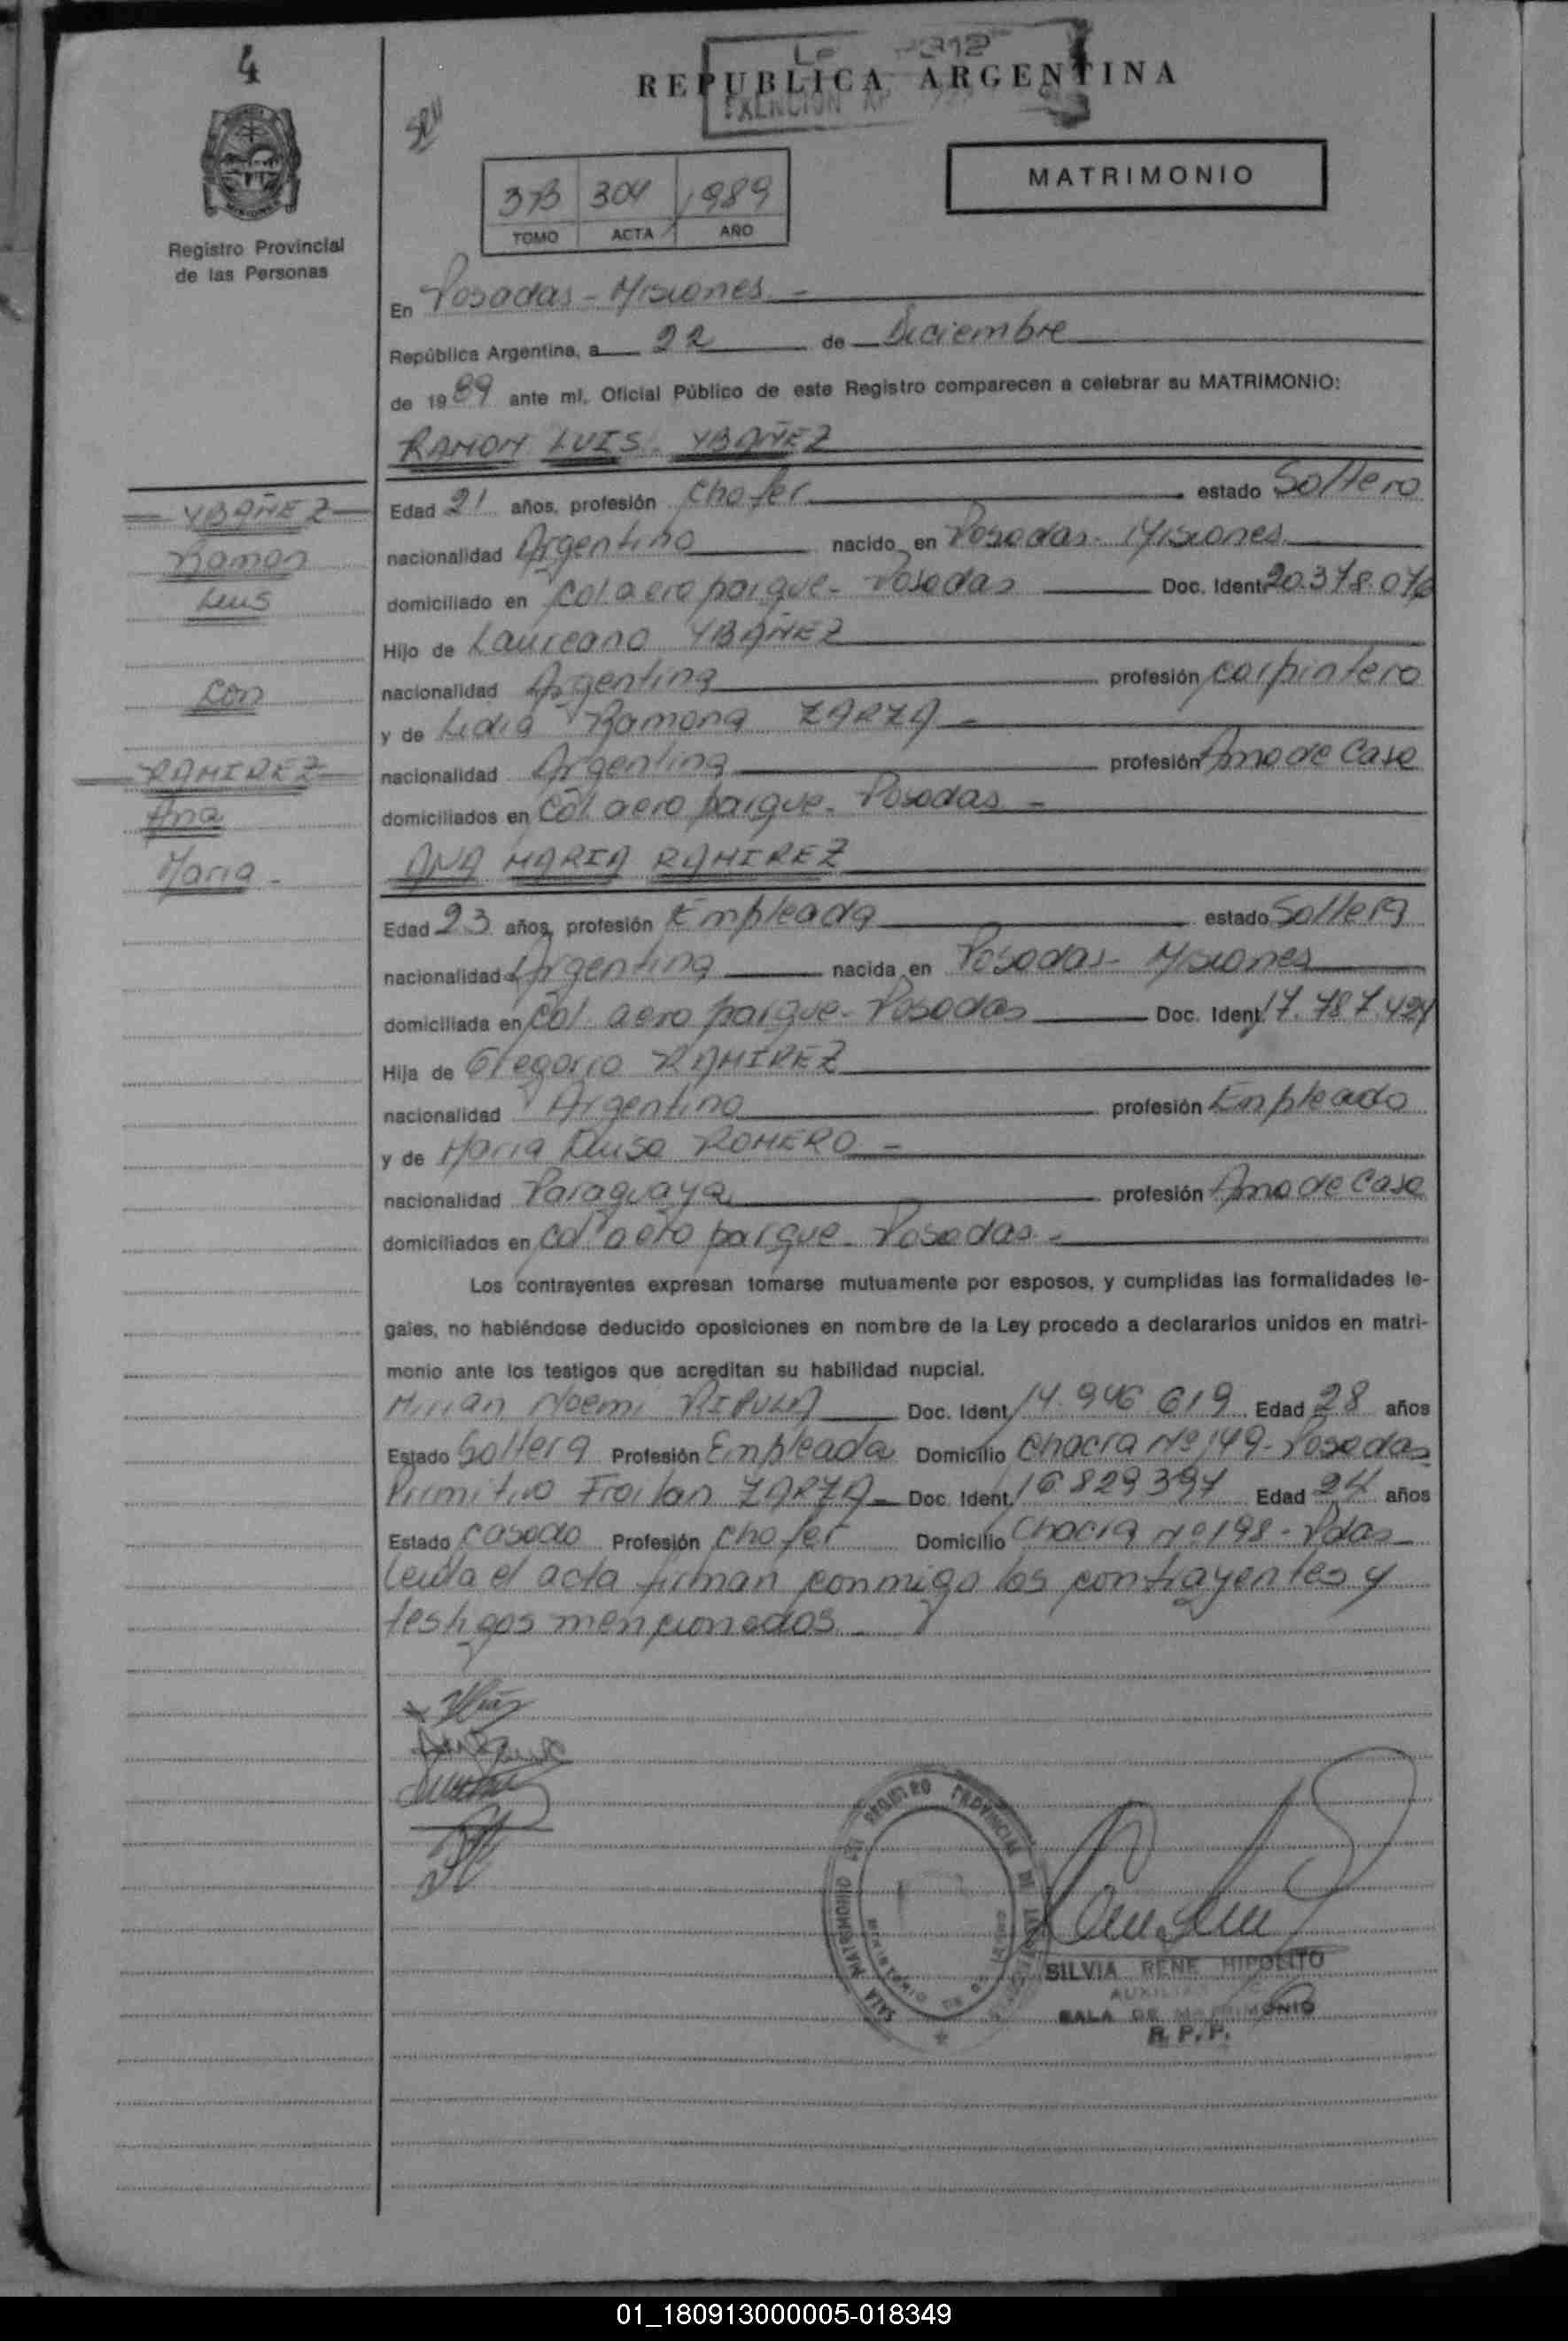 4
REPUBLICA ARGENTINA
EXENCION
MATRIMONIO
3B 304 1989
TOMO ACTA AÑO
Registro Provincial
de las Personas
En Posadas - Misiones -
República Argentina, a 22 de Diciembre
de 1989 ante mí, Oficial Público de este Registro comparecen a celebrar su MATRIMONIO:
RAMON LUIS YBAÑEZ
YBAÑEZ
Ramon
Luis
Con
RAMIREZ
Ana
Maria -
Edad 21 años, profesión Chofer estado Soltero
nacionalidad Argentino nacido en Posadas - Misiones
domiciliado en Col. aero parque - Posadas Doc. Ident. 20.378.076
Hijo de Laureano YBAÑEZ
nacionalidad Argentina profesión carpintero
y de Lidia Ramona ZARZA -
nacionalidad Argentina profesión Ama de Casa
domiciliados en Col. aero parque - Posadas -
ANA MARIA RAMIREZ
Edad 23 años, profesión Empleada estado Soltera
nacionalidad Argentina nacida en Posadas - Misiones
domiciliada en Col. aero parque - Posadas Doc. Ident. 17.787.424
Hija de Gregorio RAMIREZ
nacionalidad Argentino profesión Empleado
y de Maria Luisa ROMERO -
nacionalidad Paraguaya profesión Ama de Casa
domiciliados en Col. aero parque - Posadas -
Los contrayentes expresan tomarse mutuamente por esposos, y cumplidas las formalidades le-
gales, no habiéndose deducido oposiciones en nombre de la Ley procedo a declararlos unidos en matri-
monio ante los testigos que acreditan su habilidad nupcial.
Mirian Noemi Doc. Ident. 14.946.619 Edad 28 años
Estado Soltera Profesión Empleada Domicilio Chacra Nº 149 - Posadas
Primitivo Froilan ZARZA - Doc. Ident. 16829397 Edad 24 años
Estado Casado Profesión Chofer Domicilio Chacra Nº 198 - Pdas
Leida el acta firman conmigo los contrayentes y
testigos mencionados -
REGISTRO PROVINCIAL DE LAS PERSONAS
SALA MATRIMONIO
SILVIA RENE HIPOLITO
AUXILIAR
SALA DE MATRIMONIO
R. P. P.
01_180913000005-018349